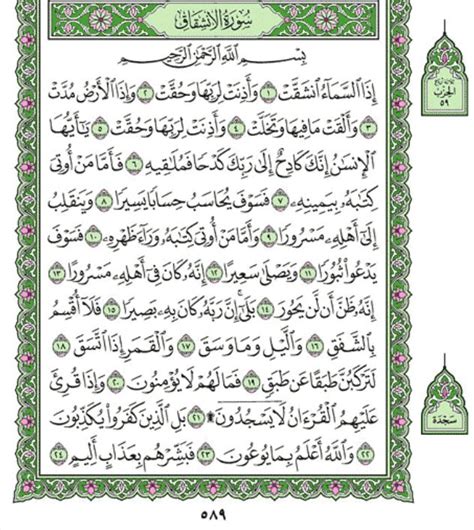 سُورَةُ الانشِقَاقِ
بِسْمِ اللَّهِ الرَّحْمَٰنِ الرَّحِيمِ
إِذَا السَّمَاءُ انشَقَّتْ ١ وَأَذِنَتْ لِرَبِّهَا وَحُقَّتْ ٢ وَإِذَا الْأَرْضُ مُدَّتْ
٣ وَأَلْقَتْ مَا فِيهَا وَتَخَلَّتْ ٤ وَأَذِنَتْ لِرَبِّهَا وَحُقَّتْ ٥ يَٰأَيُّهَا
الْإِنسَٰنُ إِنَّكَ كَادِحٌ إِلَىٰ رَبِّكَ كَدْحًا فَمُلَٰقِيهِ ٦ فَأَمَّا مَنْ أُوتِيَ
كِتَٰبَهُ بِيَمِينِهِ ٧ فَسَوْفَ يُحَاسَبُ حِسَابًا يَسِيرًا ٨ وَيَنقَلِبُ
إِلَىٰ أَهْلِهِ مَسْرُورًا ٩ وَأَمَّا مَنْ أُوتِيَ كِتَٰبَهُ وَرَاءَ ظَهْرِهِ ١٠ فَسَوْفَ
يَدْعُوا ثُبُورًا ١١ وَيَصْلَىٰ سَعِيرًا ١٢ إِنَّهُ كَانَ فِي أَهْلِهِ مَسْرُورًا ١٣
إِنَّهُ ظَنَّ أَن لَّن يَحُورَ ١٤ بَلَىٰ إِنَّ رَبَّهُ كَانَ بِهِ بَصِيرًا ١٥ فَلَا أُقْسِمُ
بِالشَّفَقِ ١٦ وَالَّيْلِ وَمَا وَسَقَ ١٧ وَالْقَمَرِ إِذَا اتَّسَقَ ١٨
لَتَرْكَبُنَّ طَبَقًا عَن طَبَقٍ ١٩ فَمَا لَهُمْ لَا يُؤْمِنُونَ ٢٠ وَإِذَا قُرِئَ
عَلَيْهِمُ الْقُرْءَانُ لَا يَسْجُدُونَ ۩ ٢١ بَلِ الَّذِينَ كَفَرُوا يُكَذِّبُونَ
٢٢ وَاللَّهُ أَعْلَمُ بِمَا يُوعُونَ ٢٣ فَبَشِّرْهُم بِعَذَابٍ أَلِيمٍ ٢٤
الحزب
٥٩
سَجْدَة
٥٨٩